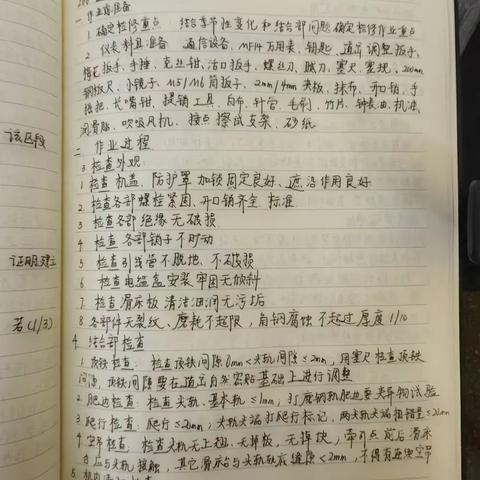 一 作业前准备
1 确定检修重点 结合季节性变化和结合部问题确定检修作业重点
2 仪表料具准备 通信设备、MF14万用表、钥匙、道岔调整扳手、
梅花扳手、手锤、克丝钳、活口扳手、螺丝刀、塞尺、200mm
钢板尺、小镜子、M5/M6筒扳子、2mm/4mm夹板、抹布、开口销、手
摇把、长嘴钳、拔销工具、白布、针管、毛刷、竹片、钟表油、机油、
润滑脂、吹吸风机、接点擦试支架、砂纸
二 作业过程
3 检查外观:
1 检查机盖、防护罩加锁固定良好、遮沿作用良好
2 检查各部螺栓紧固、开口销齐全 标准
3 检查各部绝缘无破损
4 检查各部销子不旷动
5 检查引线管不脱地、不破损
6 检查电缆盒安装牢固无倾斜
7 检查滑床板清洁油润无污垢
8 各部件无裂纹、磨耗不超限,角钢腐蚀不超过厚度1/10
4 结合部检查
1 顶铁检查: 检查顶铁间隙0mm<尖轨间隙≤2mm,用塞尺检查顶铁
间隙,顶铁间隙要在道岔自然密贴基础上进行调整
2 肥边检查: 检查尖轨、基本轨≤1mm,打磨钢轨肥边要夹异物试验
3 爬行检查: 爬行≤20mm,尖轨尖端打爬行标记,两尖轨尖端相错量≤20mm
4 空吊检查: 检查尖轨无上翘、无掉板、无弹拱,牵引点前后滑床
台应与尖轨接触,其它滑床台与尖轨轨底缝隙<2mm,不得有连续空吊
该区段
证明建立
若(1/3)